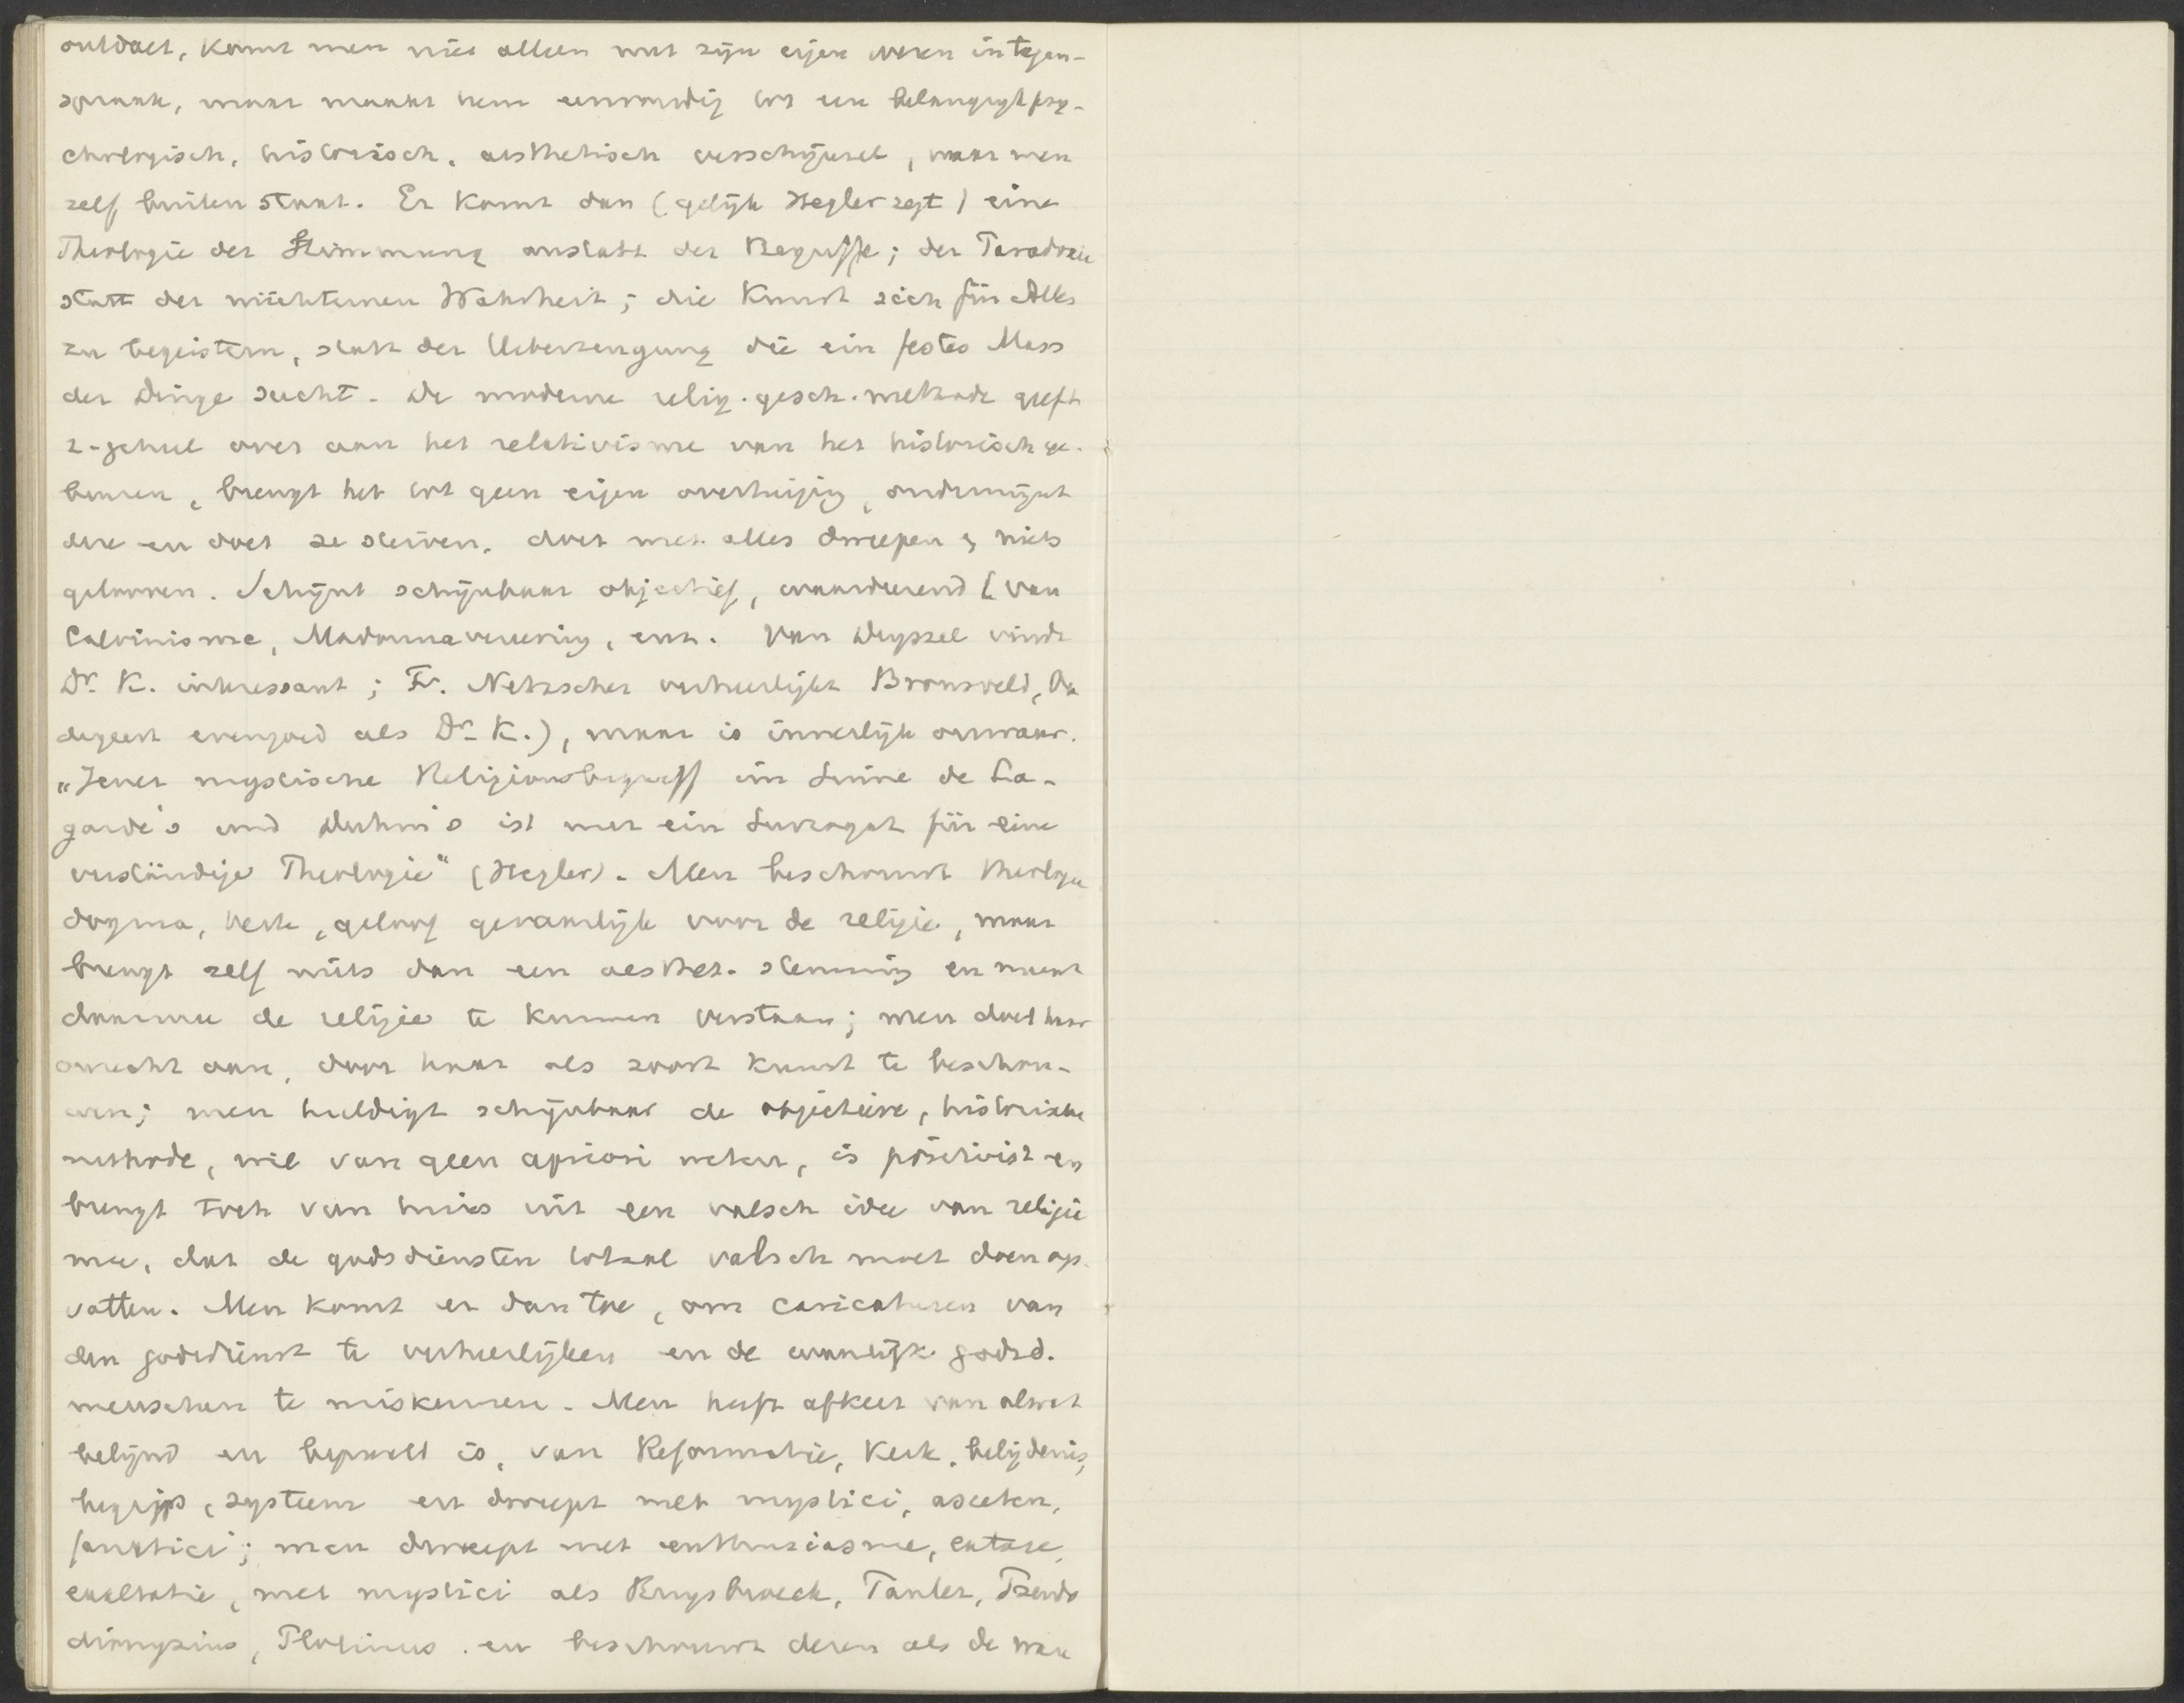 ontdoet, komt men niet alleen met zijn eigen wezen in tegen-
spraak, maar maakt hem eenvoudig tot een belangrijk psy-
chologisch, historisch, aesthetisch verschijnsel, waar men
zelf buiten staat. Er komt dan (gelijk Hegler zegt) eine
Theologie der Stimmung anstatt der Begriffe; der Paradoxie
statt der nüchternen Wahrheit; die Kunst sich für Alles
zu begeistern, statt der Ueberzeugung die ein festes Mass
der Dinge sucht. De moderne relig. gesch. methode geeft
z. geheel over aan het relativisme van het historisch ge-
beuren, brengt het tot geen eigen overtuiging, ondermijnt
deze en doet ze sterven, doet met alles dweepen & niets
gelooven. Schijnt schijnbaar objectief, waardeerend (van
Calvinisme, Madonnavereering, enz. Van Deyssel vindt
Dr. K. interessant; Fr. Netscher verheerlijkt Bronsveld,
evengoed als Dr. K.), maar is innerlijk onwaar.
"Jener mystische Religionsbegriff im Sinne de La-
garde's und Duhm's ist nur ein Surrogat für eine
verständige Theologie" (Hegler). Men beschouwt theologie
dogma, kerk, geloof gevaarlijk voor de religie, maar
brengt zelf niets dan een aesthet. stemming en meent
daarmee de religie te kunnen verstaan; men doet haar
onrecht aan, door haar als soort kunst te beschou-
wen; men huldigt schijnbaar de objectieve, historische
methode, wil van geen apriori weten, is positivist en
brengt toch van huis uit een valsch idee van religie
mee, dat de godsdiensten totaal valsch moet doen op-
vatten. Men komt er dan toe, om caricaturen van
den godsdienst te verheerlijken en de godsd.
menschen te miskennen. Men heeft afkeer van alwat
belijnd en bepaald is, van Reformatie, Kerk, belijdenis,
begrip, systeem en dweept met mystici, asceten,
fanatici; men dweept met enthusiasme, extase,
exaltatie, met mystici als Ruysbroeck, Tauler, Pseudo
dionysius, Plotinus en beschouwt dezen als de ware